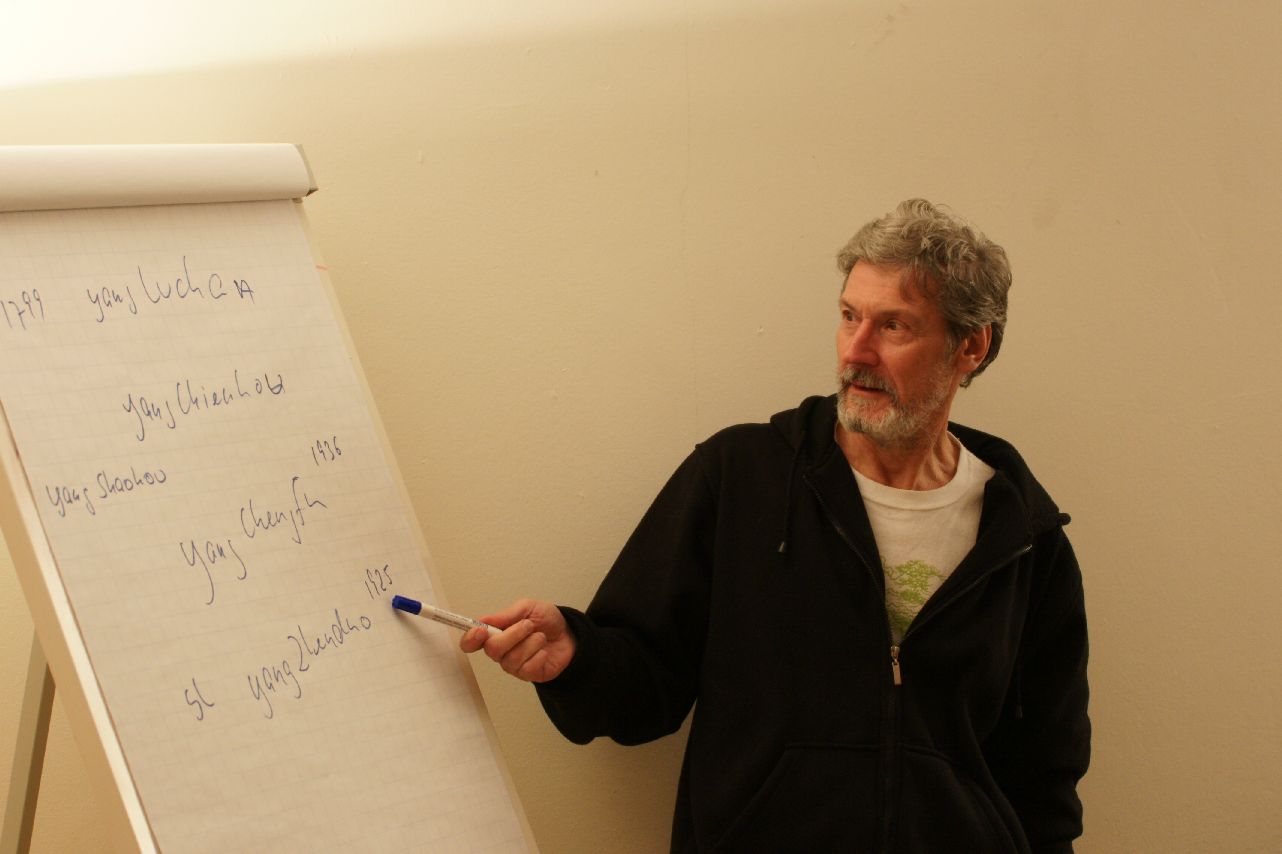 1799 yang Luchan
yang Chienhou
1936
yang Shaohou
yang Chengfu
1925
yang Zhenduo